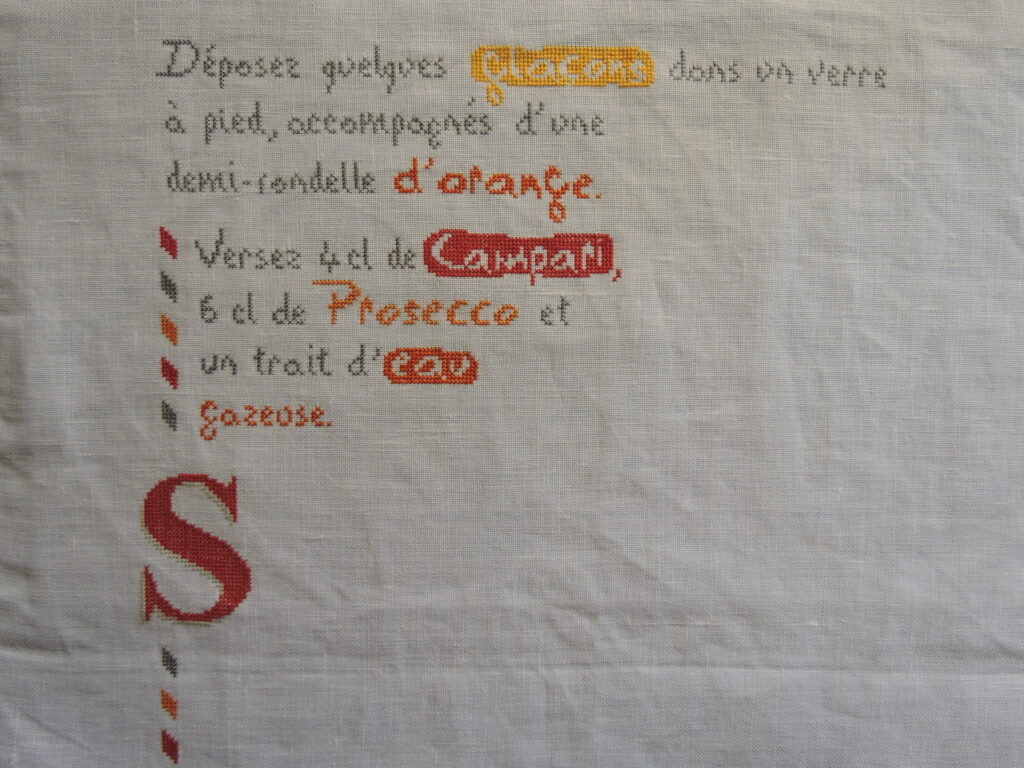 Déposez quelques glaçons dans un verre
à pied, accompagnés d'une
demi-rondelle d'orange.
Versez 4 cl de Campari,
6 cl de Prosecco et
un trait d'eau
gazeuse.
S